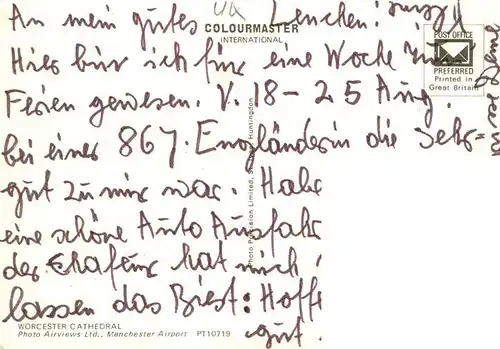 An mein gutes Lenchen!
COLOURMASTER
INTERNATIONAL
POST OFFICE
PREFERRED
Printed in
Great Britain
Hier bin ich für eine Woche in
Ferien gewesen. V. 18 - 25 Aug.
bei einer 86 J. Engländerin die sehr
gut zu mir war. Habe
eine schöne Auto Ausfahrt
der hat mich
lassen das Biest: Hoffe
gut.
Photo Precision Limited, St. Ives, Huntingdon
WORCESTER CATHEDRAL
Photo Airviews Ltd., Manchester Airport PT10719